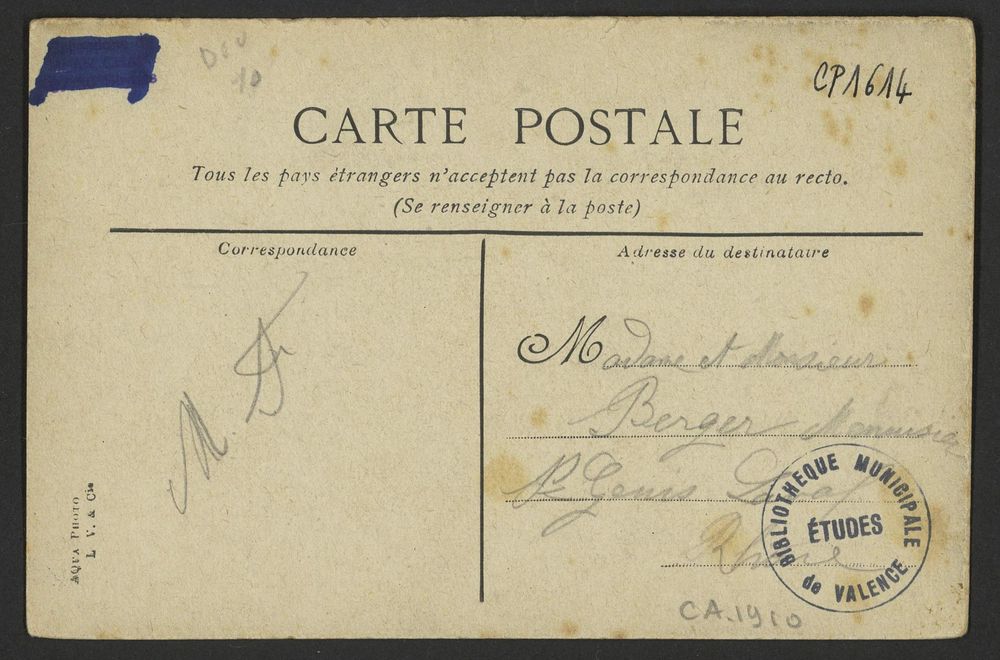 CP1614
CARTE POSTALE
Tous les pays étrangers n'acceptent pas la correspondance au recto.
(Se renseigner à la poste)
Correspondance
M.
AQUA PHOTO
L. V. & Cie
Adresse du destinataire
Madame et Monsieur
Berger Menuisier
St Genis Laval
Rhône
BIBLIOTHEQUE MUNICIPALE
ÉTUDES
de VALENCE
CA.1910